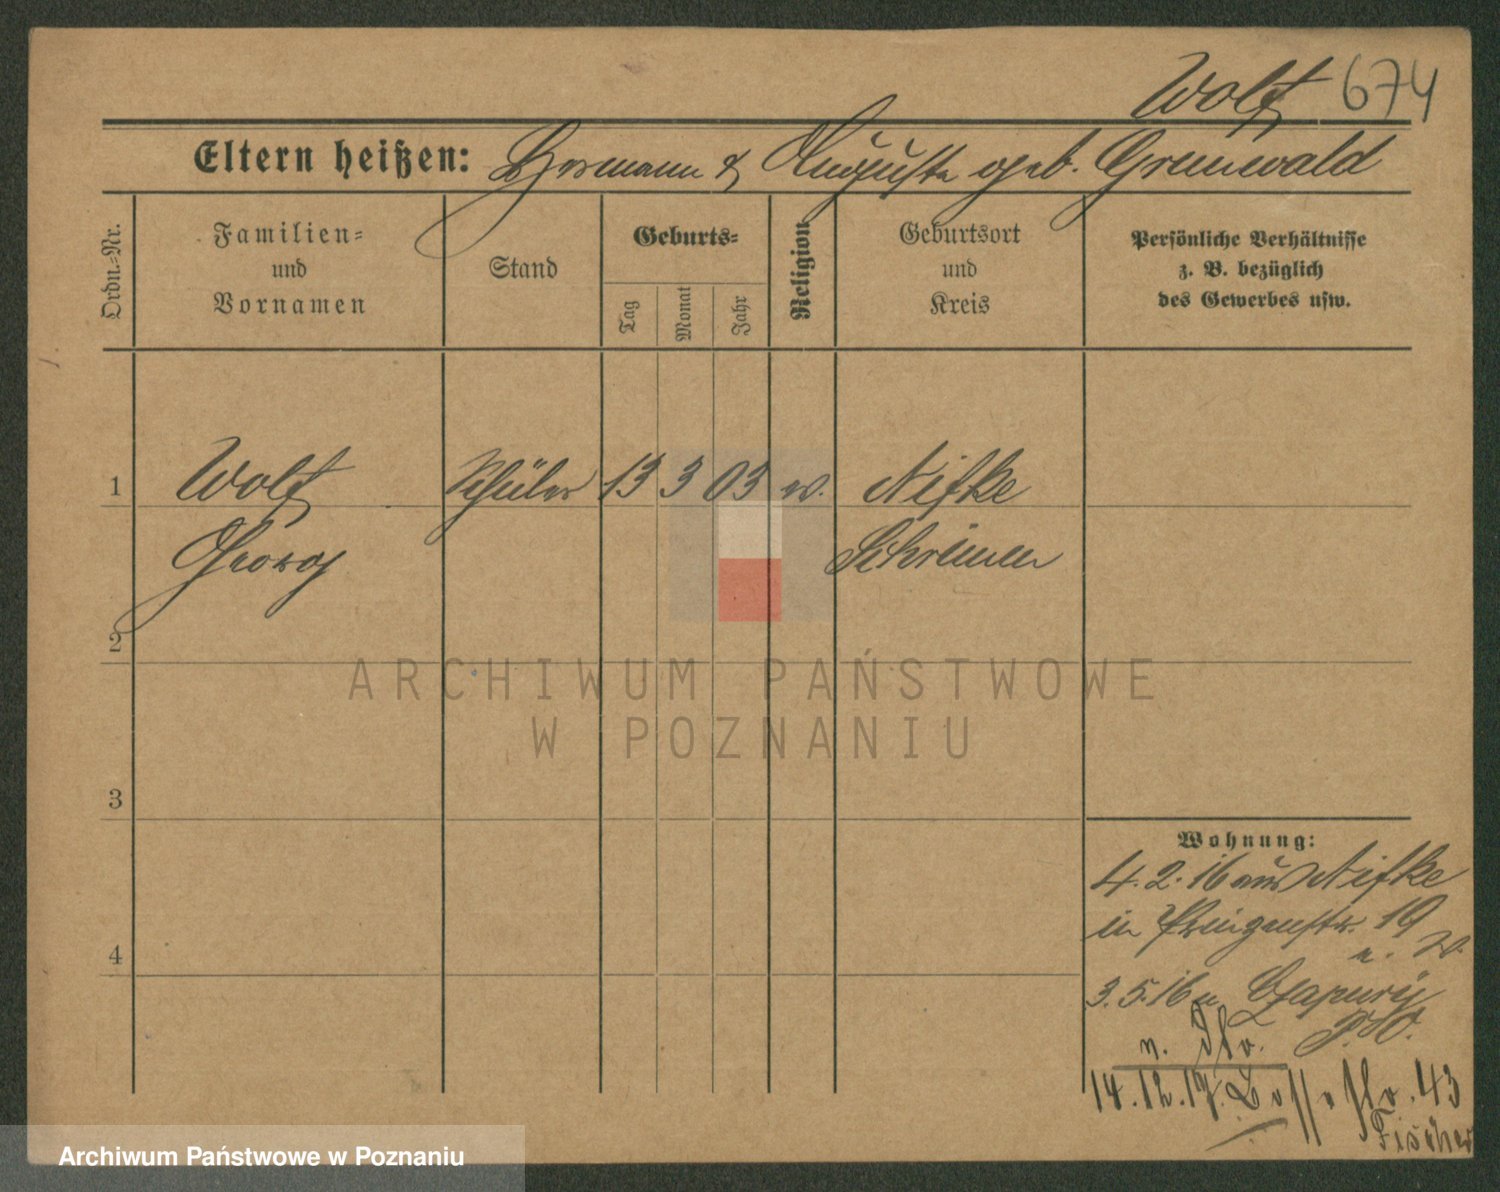 Wolf 674
Eltern heißen: Hermann & Auguste geb. Grunwald
Ordn.-Nr.
Familien-
und
Vornamen
Stand
Geburts-
Tag
Monat
Jahr
Religion
Geburtsort
und
Kreis
Persönliche Verhältnisse
z. B. bezüglich
des Gewerbes usw.
1 Wolf Schüler 13 3 03 ev. Nifke
Georg Schrimm
2
3
4
Wohnung:
4. 2. 16 aus Nifke
in Prinzenstr. 19
3. 5. 16 n. Czapury
n.
14. 12. 17. 43
Fischer
ARCHIWUM PAŃSTWOWE
W POZNANIU
Archiwum Państwowe w Poznaniu